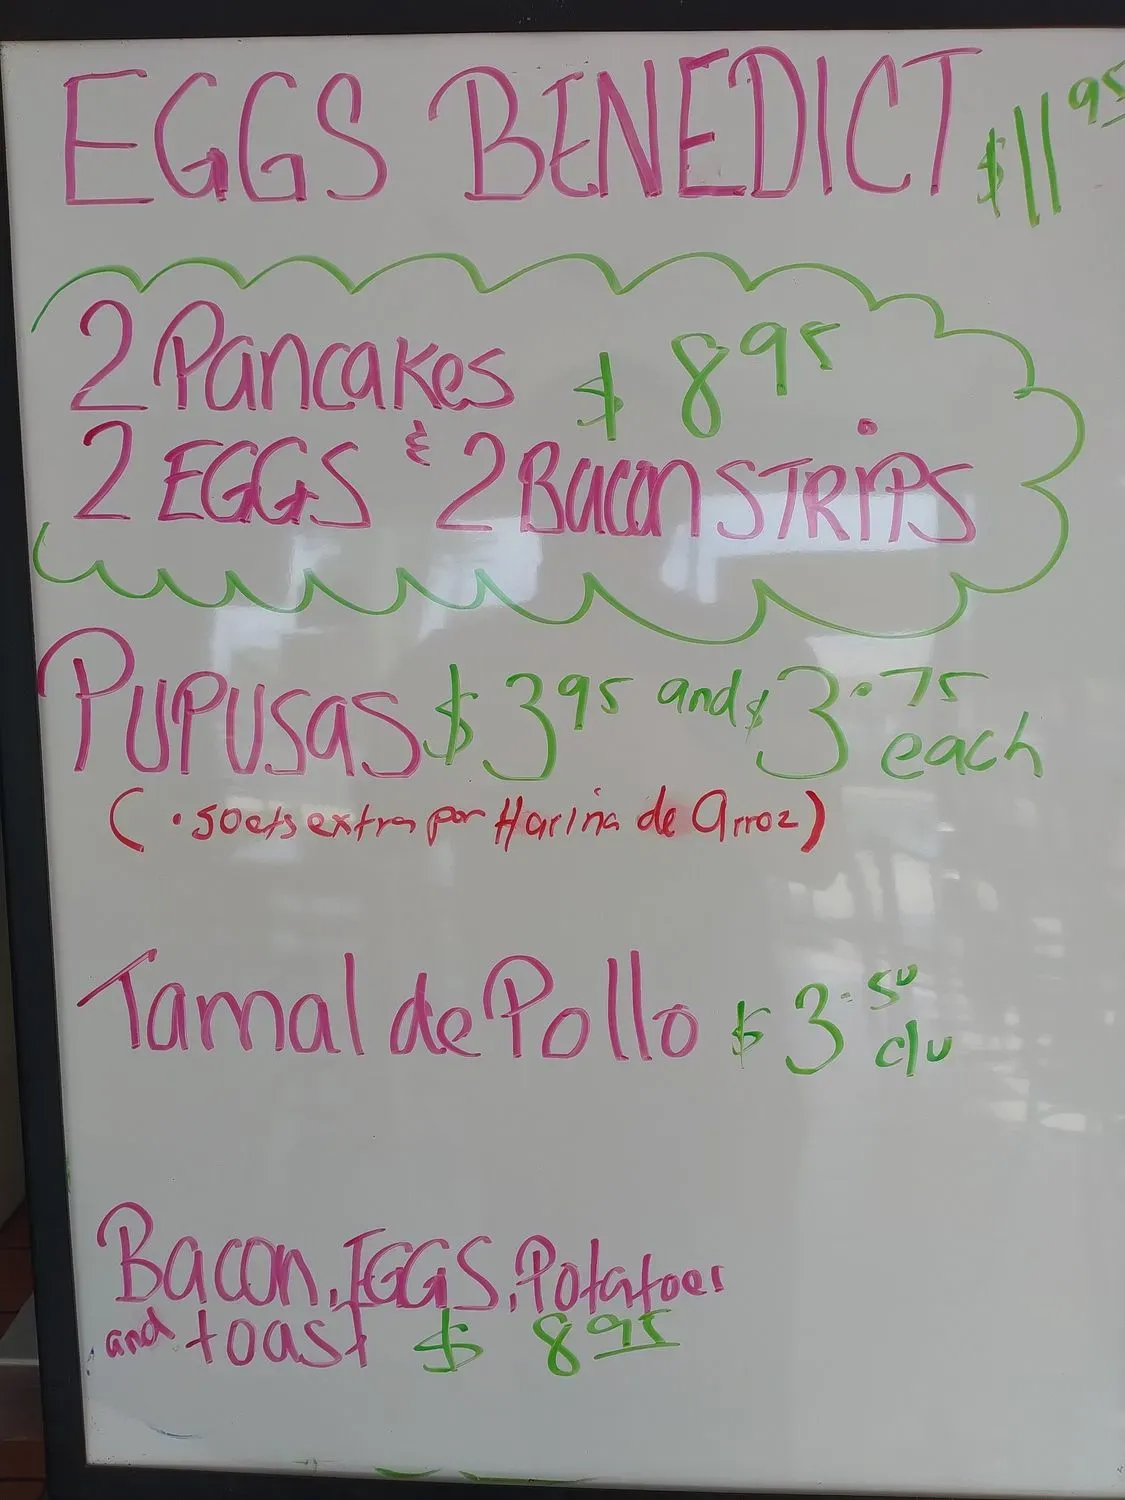 EGGS BENEDICT $11 95
2 Pancakes $8 95
2 EGGS & 2 Bacon STRiPS
PUPUSas $3 95 and $3.75 each
(.50cts extra por Harina de arroz)
Tamal de Pollo $3.50 c/u
Bacon, EGGS, Potatoes
and toast $8 95